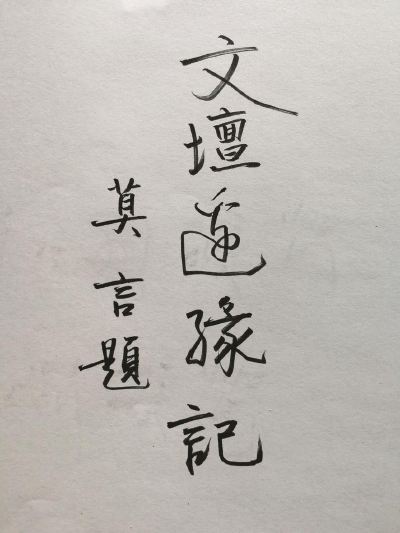 文壇邊緣記
莫言題